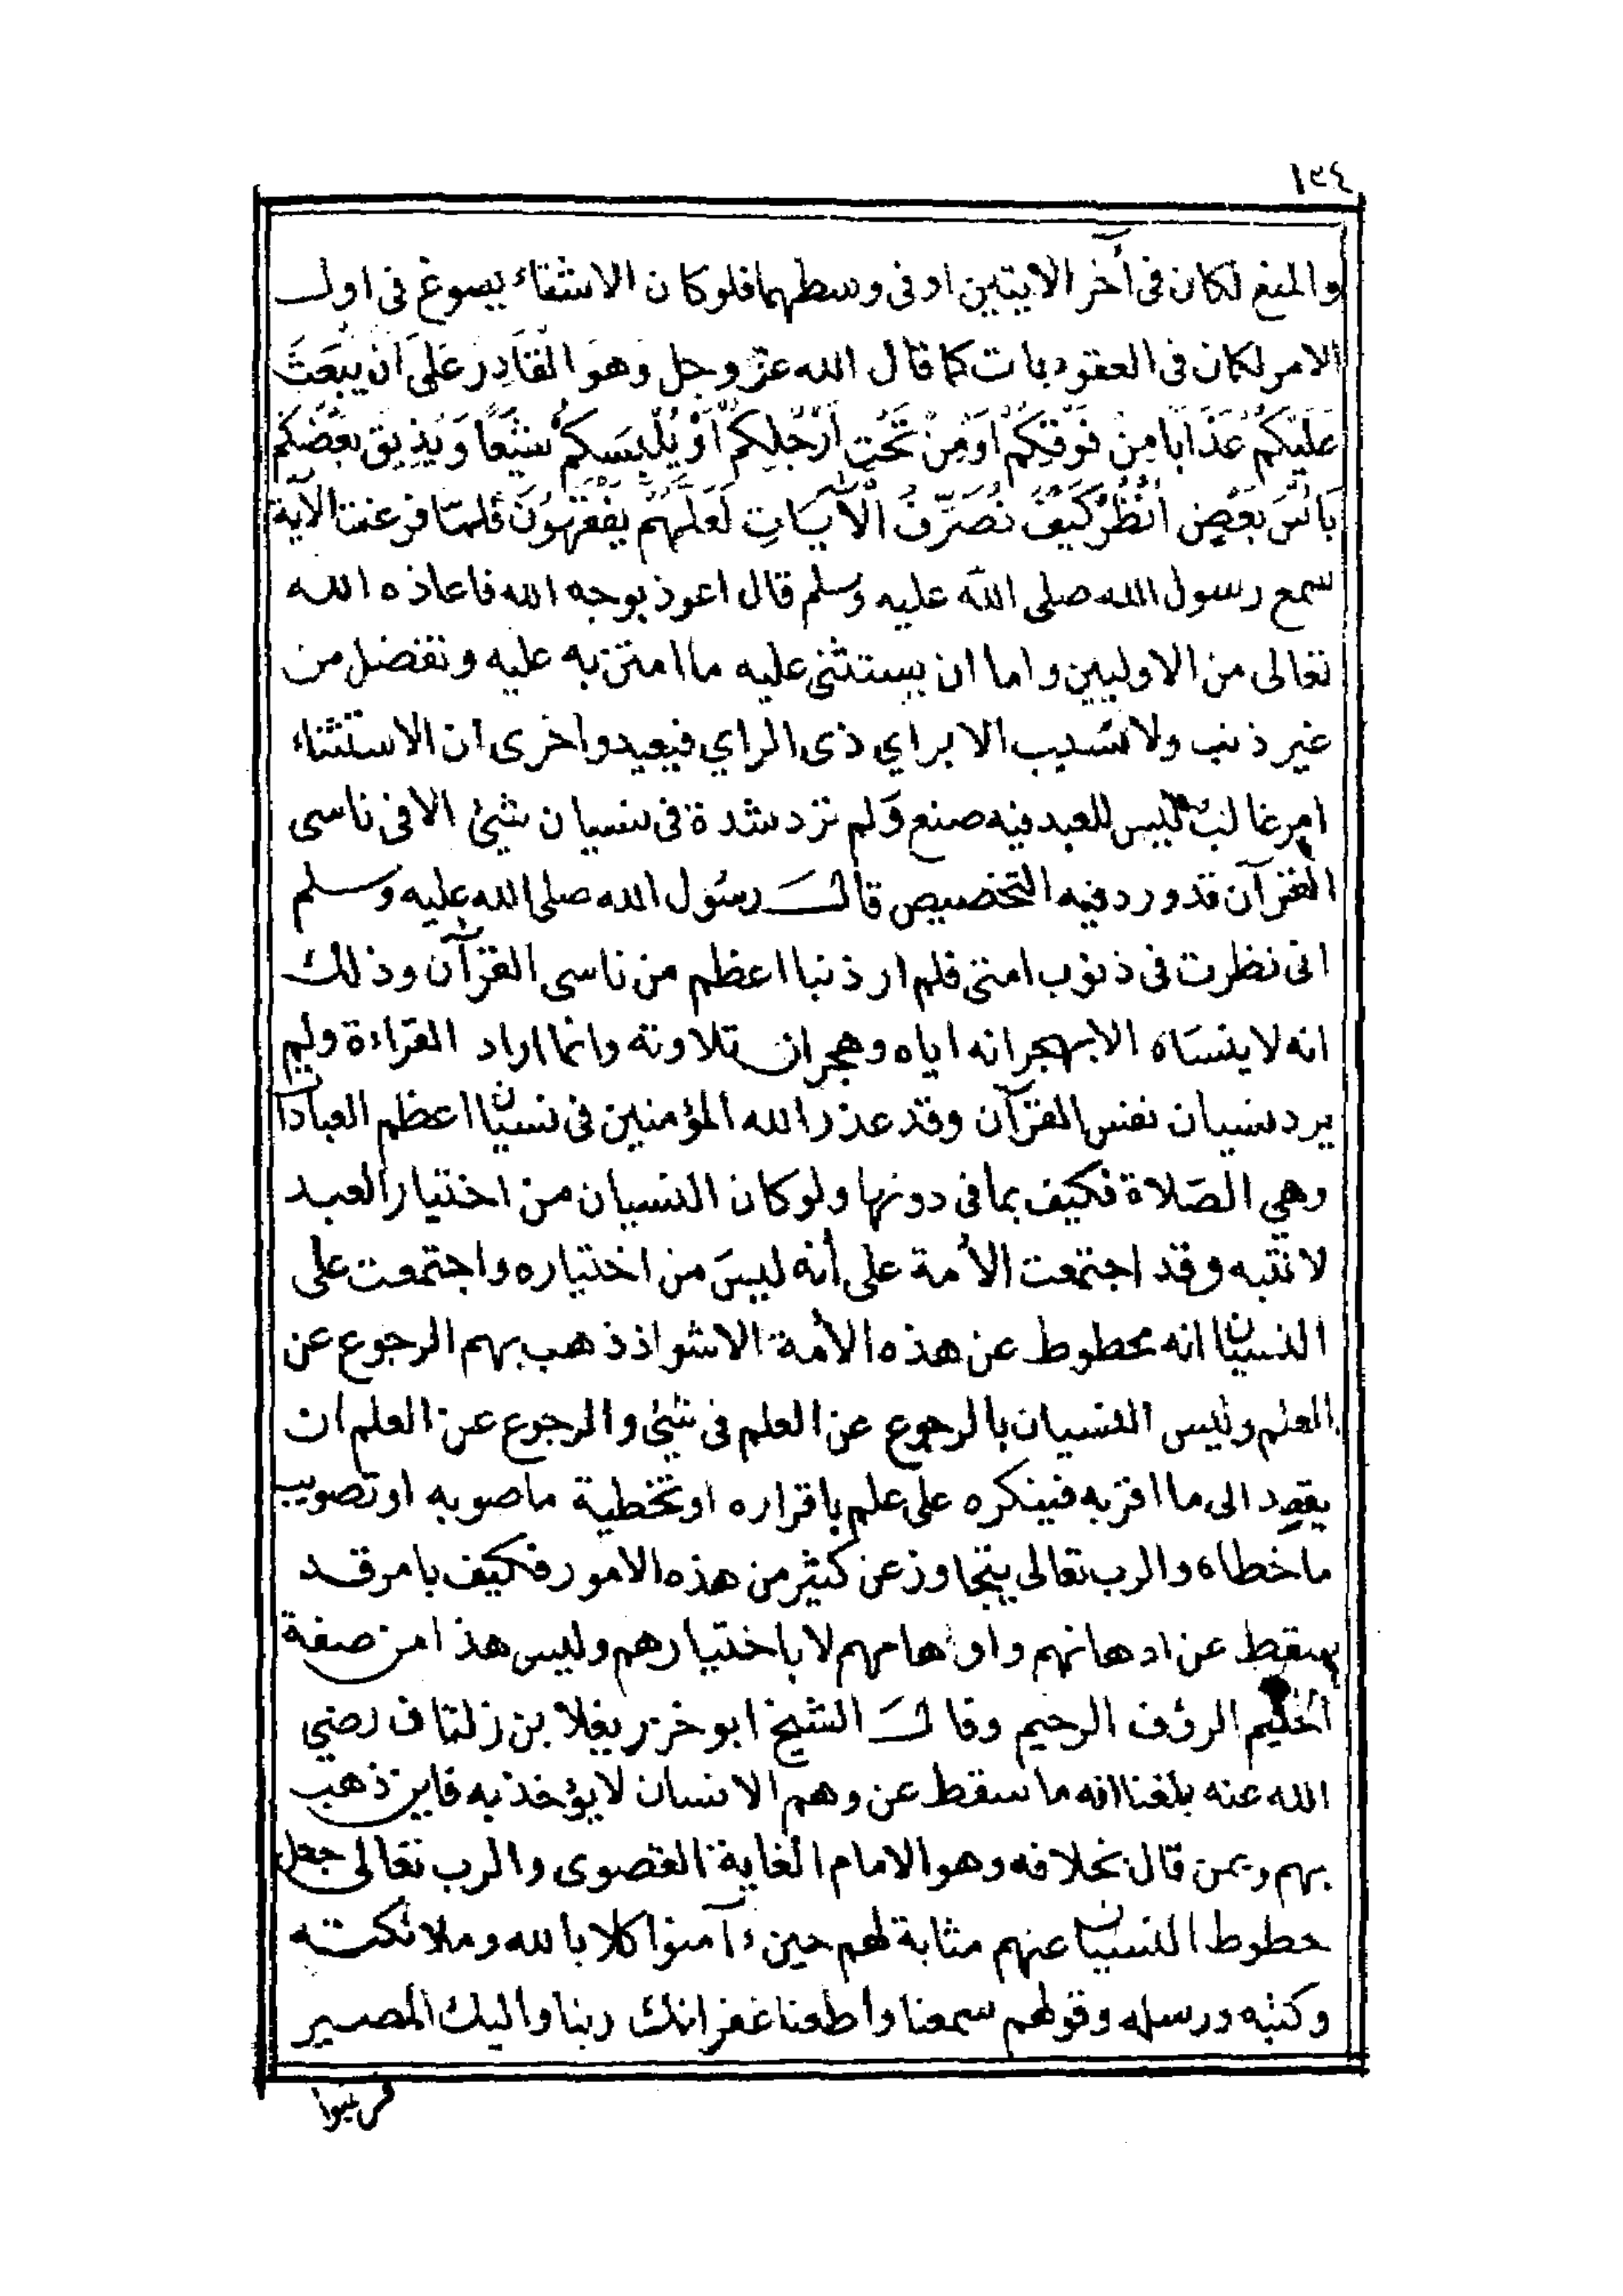 ١٣٤
والمنع لكان فى آخر الايتين او فى وسطهما فلو كان الاشقاء يسوغ فى اول
الامر لكان فى العقوبات كما قال الله عز وجل وَهوَ القَادِر عَلىَ اَنْ يبْعَثَ
عَلَيْكُمْ عَذَابًا مِنْ فَوْقِكمْ اَوَمِنْ تَحْتِ اَرْجُلِكمْ اَوْ يُلْبِسَكمْ شيَعًا وَيُذِيق بَعْضَكمْ
بَاْسَ بَعْضٍ اُنْظُرْ كَيْفَ نُصَرِّفُ الْآيَاتِ لَعَلَّهُمْ يَفْقَهُونَ فلمّا فرغت الآية
سمع رسول الله صلى الله عليه وسلم قال اعوذ بوجه الله فاعاذه الله
تعالى من الاوليين واما ان يستثنى عليه ما امتن به عليه وتفضل من
غير ذنب ولا سبب الا براي ذى الراي فبعيد واخرى ان الاستثناء
امر غالب ليس للعبد فيه صنع وَلم نزد شدة فى نسيان شئ الا فى ناسى
القرآن قد ورد فيه التخصيص قالَ رسُول الله صلى الله عليه وسلم
انى نظرت فى ذنوب امتى فلم ار ذنبا اعظم من ناسى القرآن وذلك
انه لا ينسَاه الا بهجرانه اياه وهجران تلاوته وانما اراد القراءة ولم
يرد نسيان نفس القرآن وقد عذر الله المؤمنين فى نسيان اعظم العبادا
وهي الصَلاة فكيف بما فى دونها ولو كان النسيان من اختيار العبد
لانتبه وقد اجتمعت الأمة على أنه ليسَ من اختياره واجتمعت على
النسيان انه محطوط عن هذه الأمة الا شواذ ذهب بهم الرجوع عن
العلم وليس النسيان بالرجوع عن العلم فى شئ والرجوع عن العلم ان
يقصد الى ما اقر به فينكره على علم باقراره او تخطية ما صوبه او تصويب
ما خطاه والرب تعالى يتجاوز عن كثير من هذه الامور فكيف بامر قد
سقط عن اذهانهم واوهامهم لا باختيارهم وليس هذا من صفة
الحليم الرؤف الرحيم وقالَ الشيخ ابو خزر يغلا بن زلتاف رضي
الله عنه بلغنا انه ما سقط عن وهم الانسان لا يؤخذ به فاين ذهب
بهم وبمن قال بخلافه وهو الامام الغاية القصوى والرب تعالى جعل
حطوط النسيان عنهم مثابة لهم حين ءآمنوا كلا بالله وملائكته
وكتبه ورسله وقولهم سمعنا واطعنا غفرانك ربنا واليك المصير